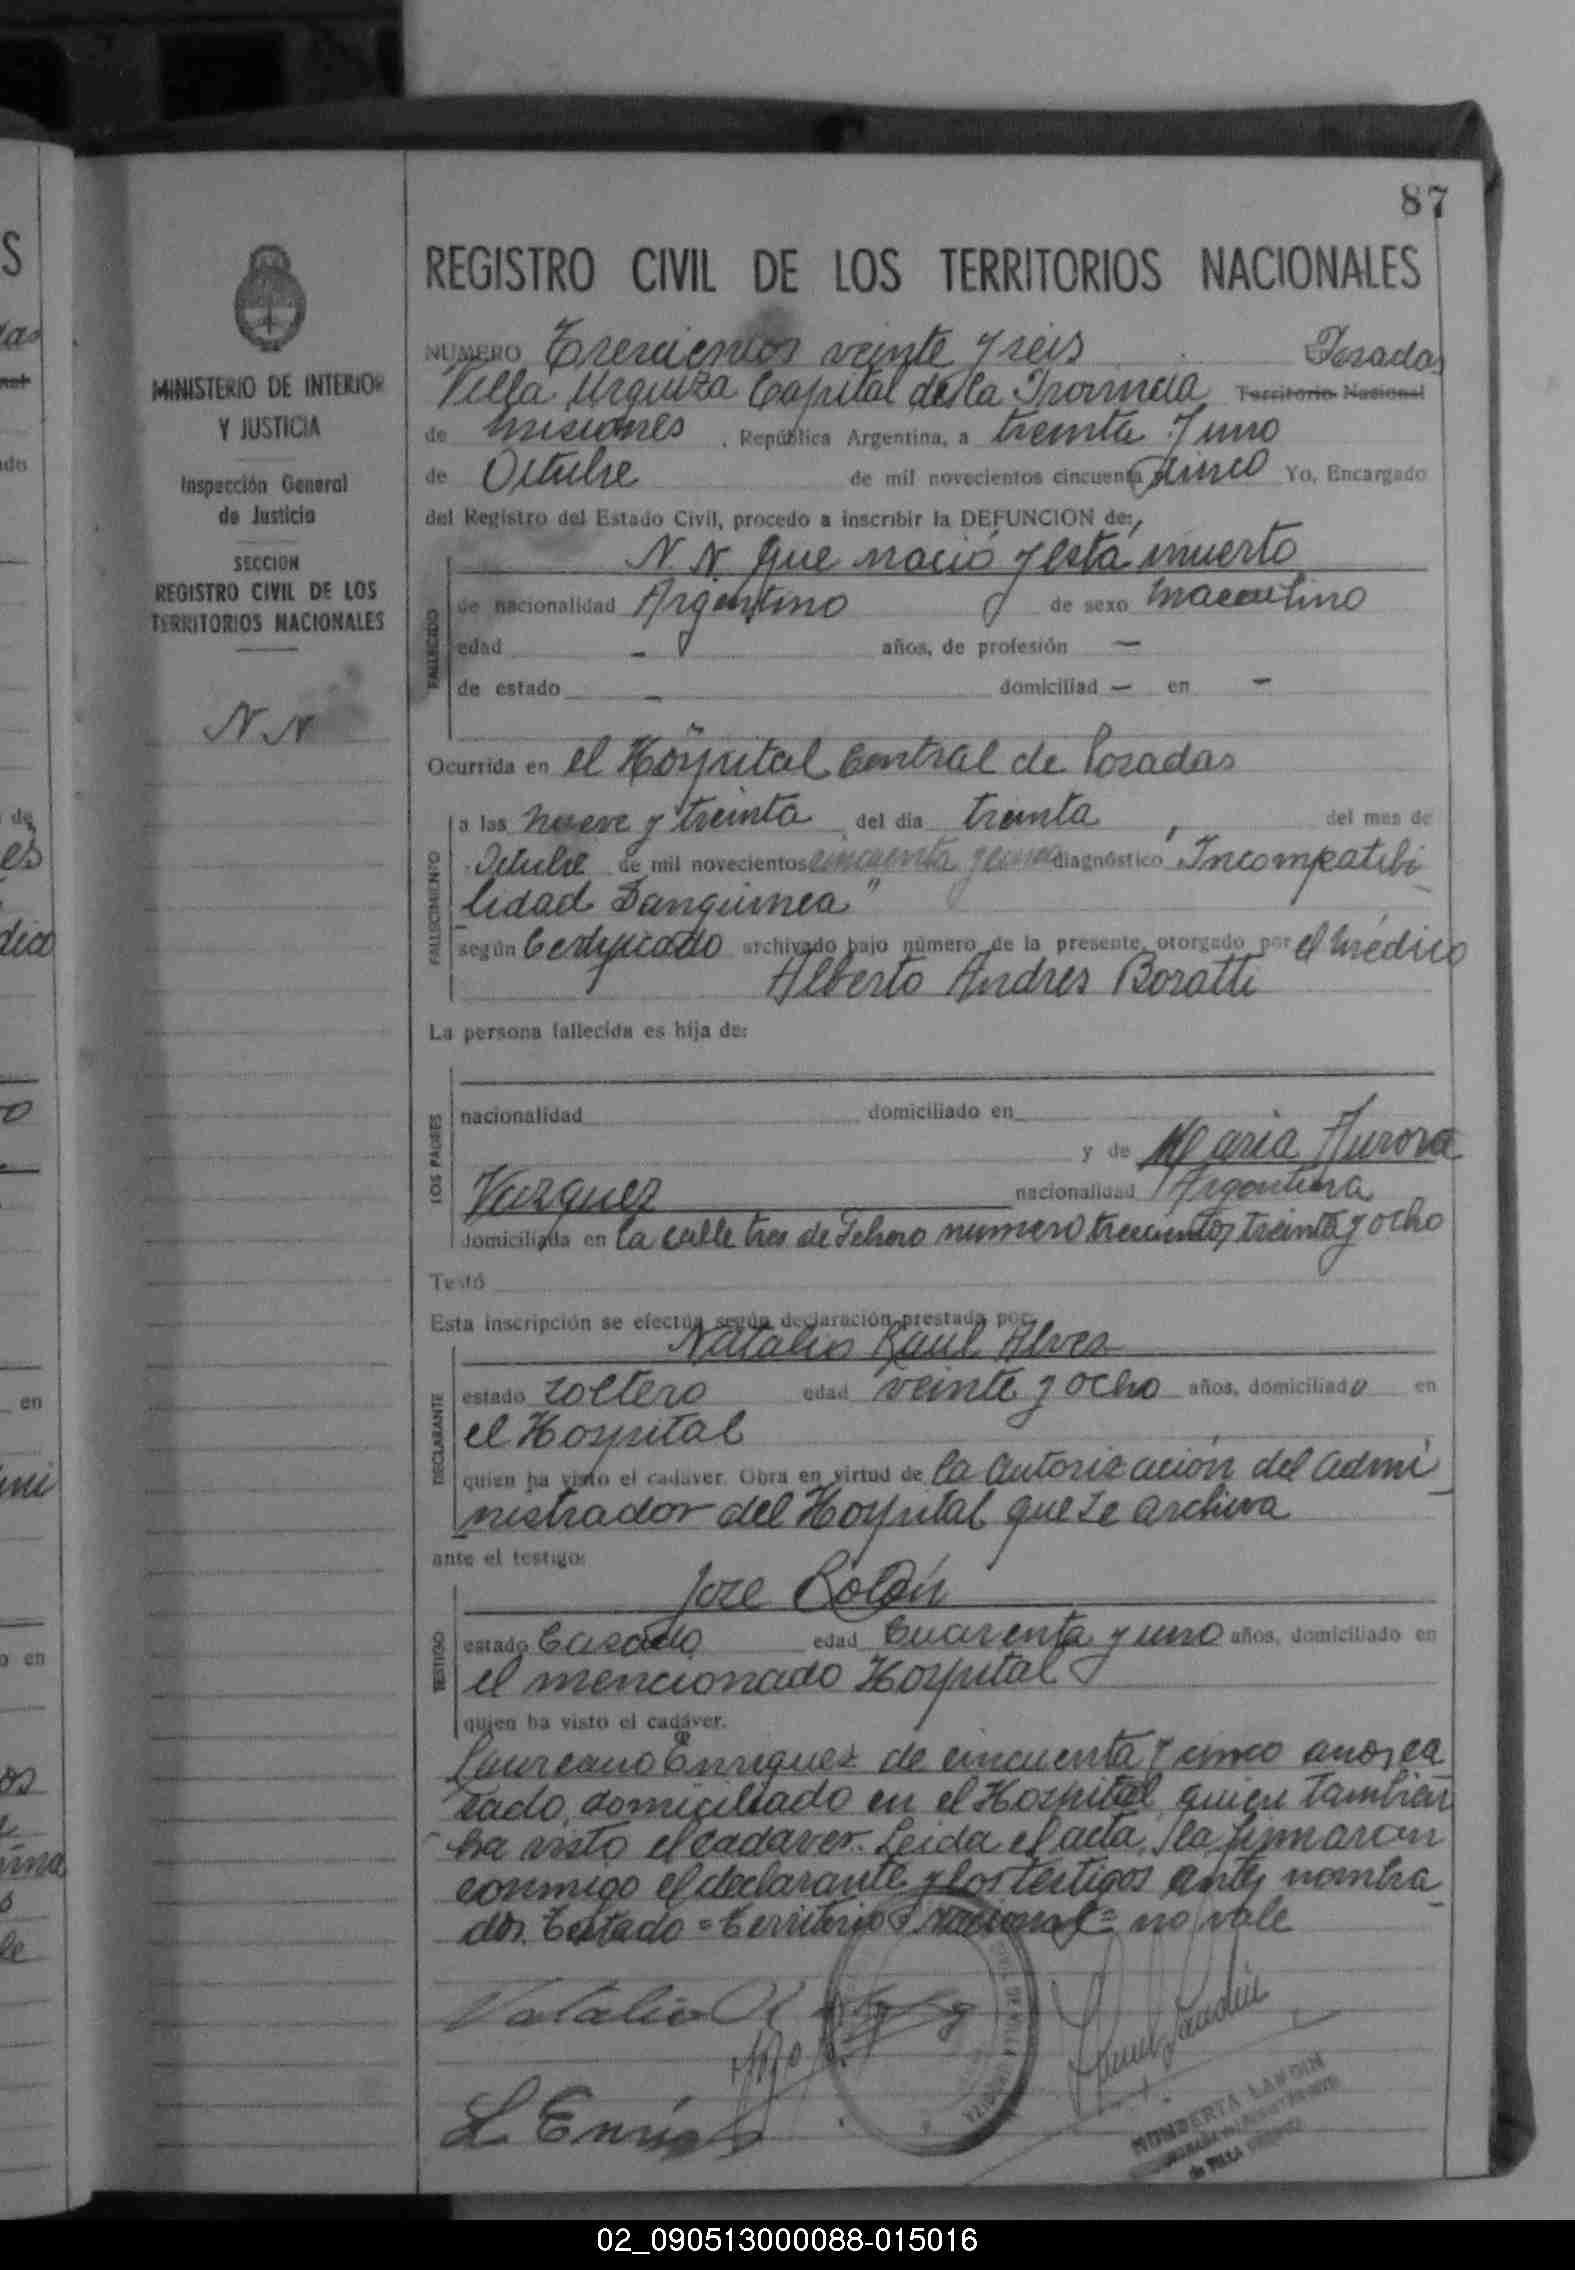 87
REGISTRO CIVIL DE LOS TERRITORIOS NACIONALES
MINISTERIO DE INTERIOR
Y JUSTICIA
Inspección General
de Justicia
SECCION
REGISTRO CIVIL DE LOS
TERRITORIOS NACIONALES
N. N
NUMERO Trescientos veinte y seis Posadas
Villa Urquiza Capital de la Provincia Territorio Nacional
de Misiones , República Argentina, a treinta y uno
de Octubre de mil novecientos cincuenta y cinco Yo, Encargado
del Registro del Estado Civil, procedo a inscribir la DEFUNCION de:
N. N. que nació y está muerto
FALLECIDO
de nacionalidad Argentino de sexo masculino
edad – años, de profesión –
de estado – domiciliad – en –
Ocurrida en el Hospital Central de Posadas
FALLECIMIENTO
a las nueve y treinta del día treinta del mes de
Octubre de mil novecientos cincuenta y cinco diagnóstico "Incompatibi
lidad Sanguinea"
según Certificado archivado bajo número de la presente, otorgado por el médico
Alberto Andres Boratti
La persona fallecida es hija de:
LOS PADRES
nacionalidad domiciliado en
y de Maria Aurora
Vazquez nacionalidad Argentina
domiciliada en la calle tres de Febrero numero trescientos treinta y ocho
Testó
Esta inscripción se efectúa según declaración prestada por:
Natalio Raul Alves
DECLARANTE
estado soltero edad veinte y ocho años, domiciliado en
el Hospital
quien ha visto el cadáver. Obra en virtud de la autorización del admi
nistrador del Hospital que se archiva
ante el testigo:
Jose Roldán
TESTIGO
estado Casado edad Cuarenta y uno años, domiciliado en
el mencionado Hospital
quien ha visto el cadáver.
Laureano Enriquez de cincuenta y cinco anos, ca
sado, domiciliado en el Hospital quien tambien
ha visto el cadaver. Leida el acta, la firmaron
conmigo el declarante y los testigos antes nombra
dos. Testado = Territorio Nacional = no vale
Natalio R
L Enriq
HUMBERTA LANDIN
de VILLA URQUIZA
02_090513000088-015016